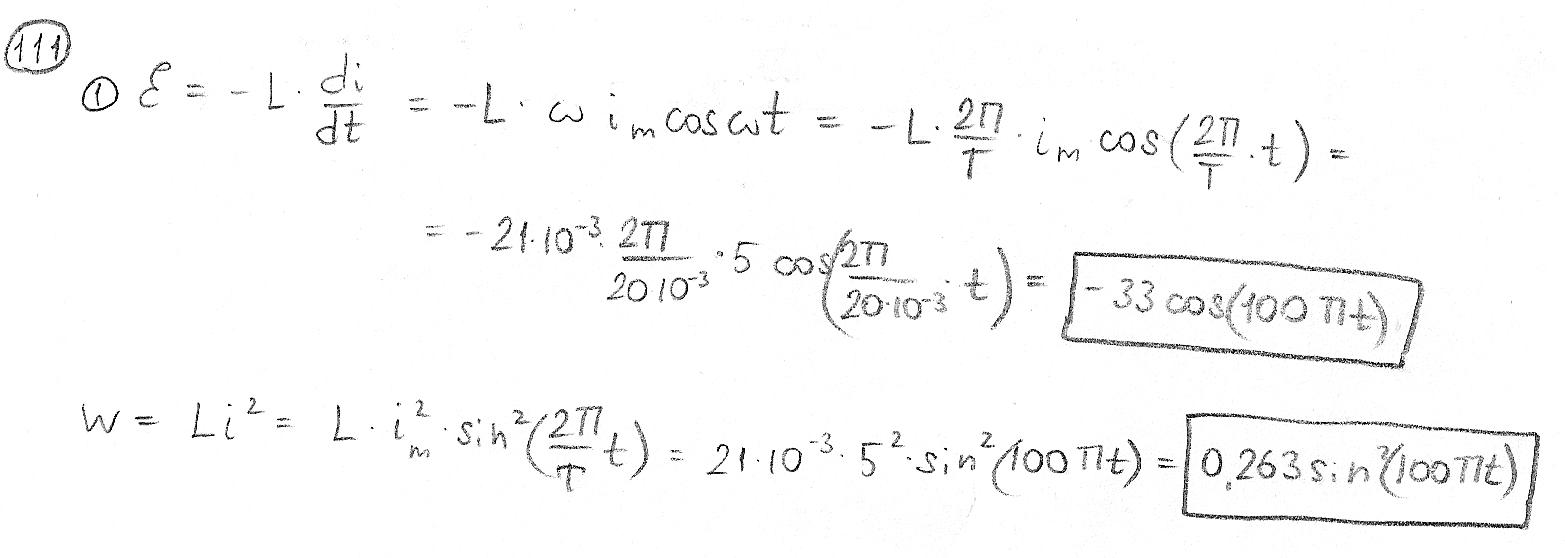 111
① ℰ = - L · di/dt = -L · ω i_m cos ωt = -L · 2π/T · i_m cos(2π/T · t) =
= -21·10⁻³ · 2π/20 10⁻³ · 5 cos(2π/20·10⁻³ · t) = -33 cos(100πt)
W = Li² = L · i_m² · sin²(2π/T t) = 21·10⁻³ · 5² · sin²(100πt) = 0,263 sin²(100πt)